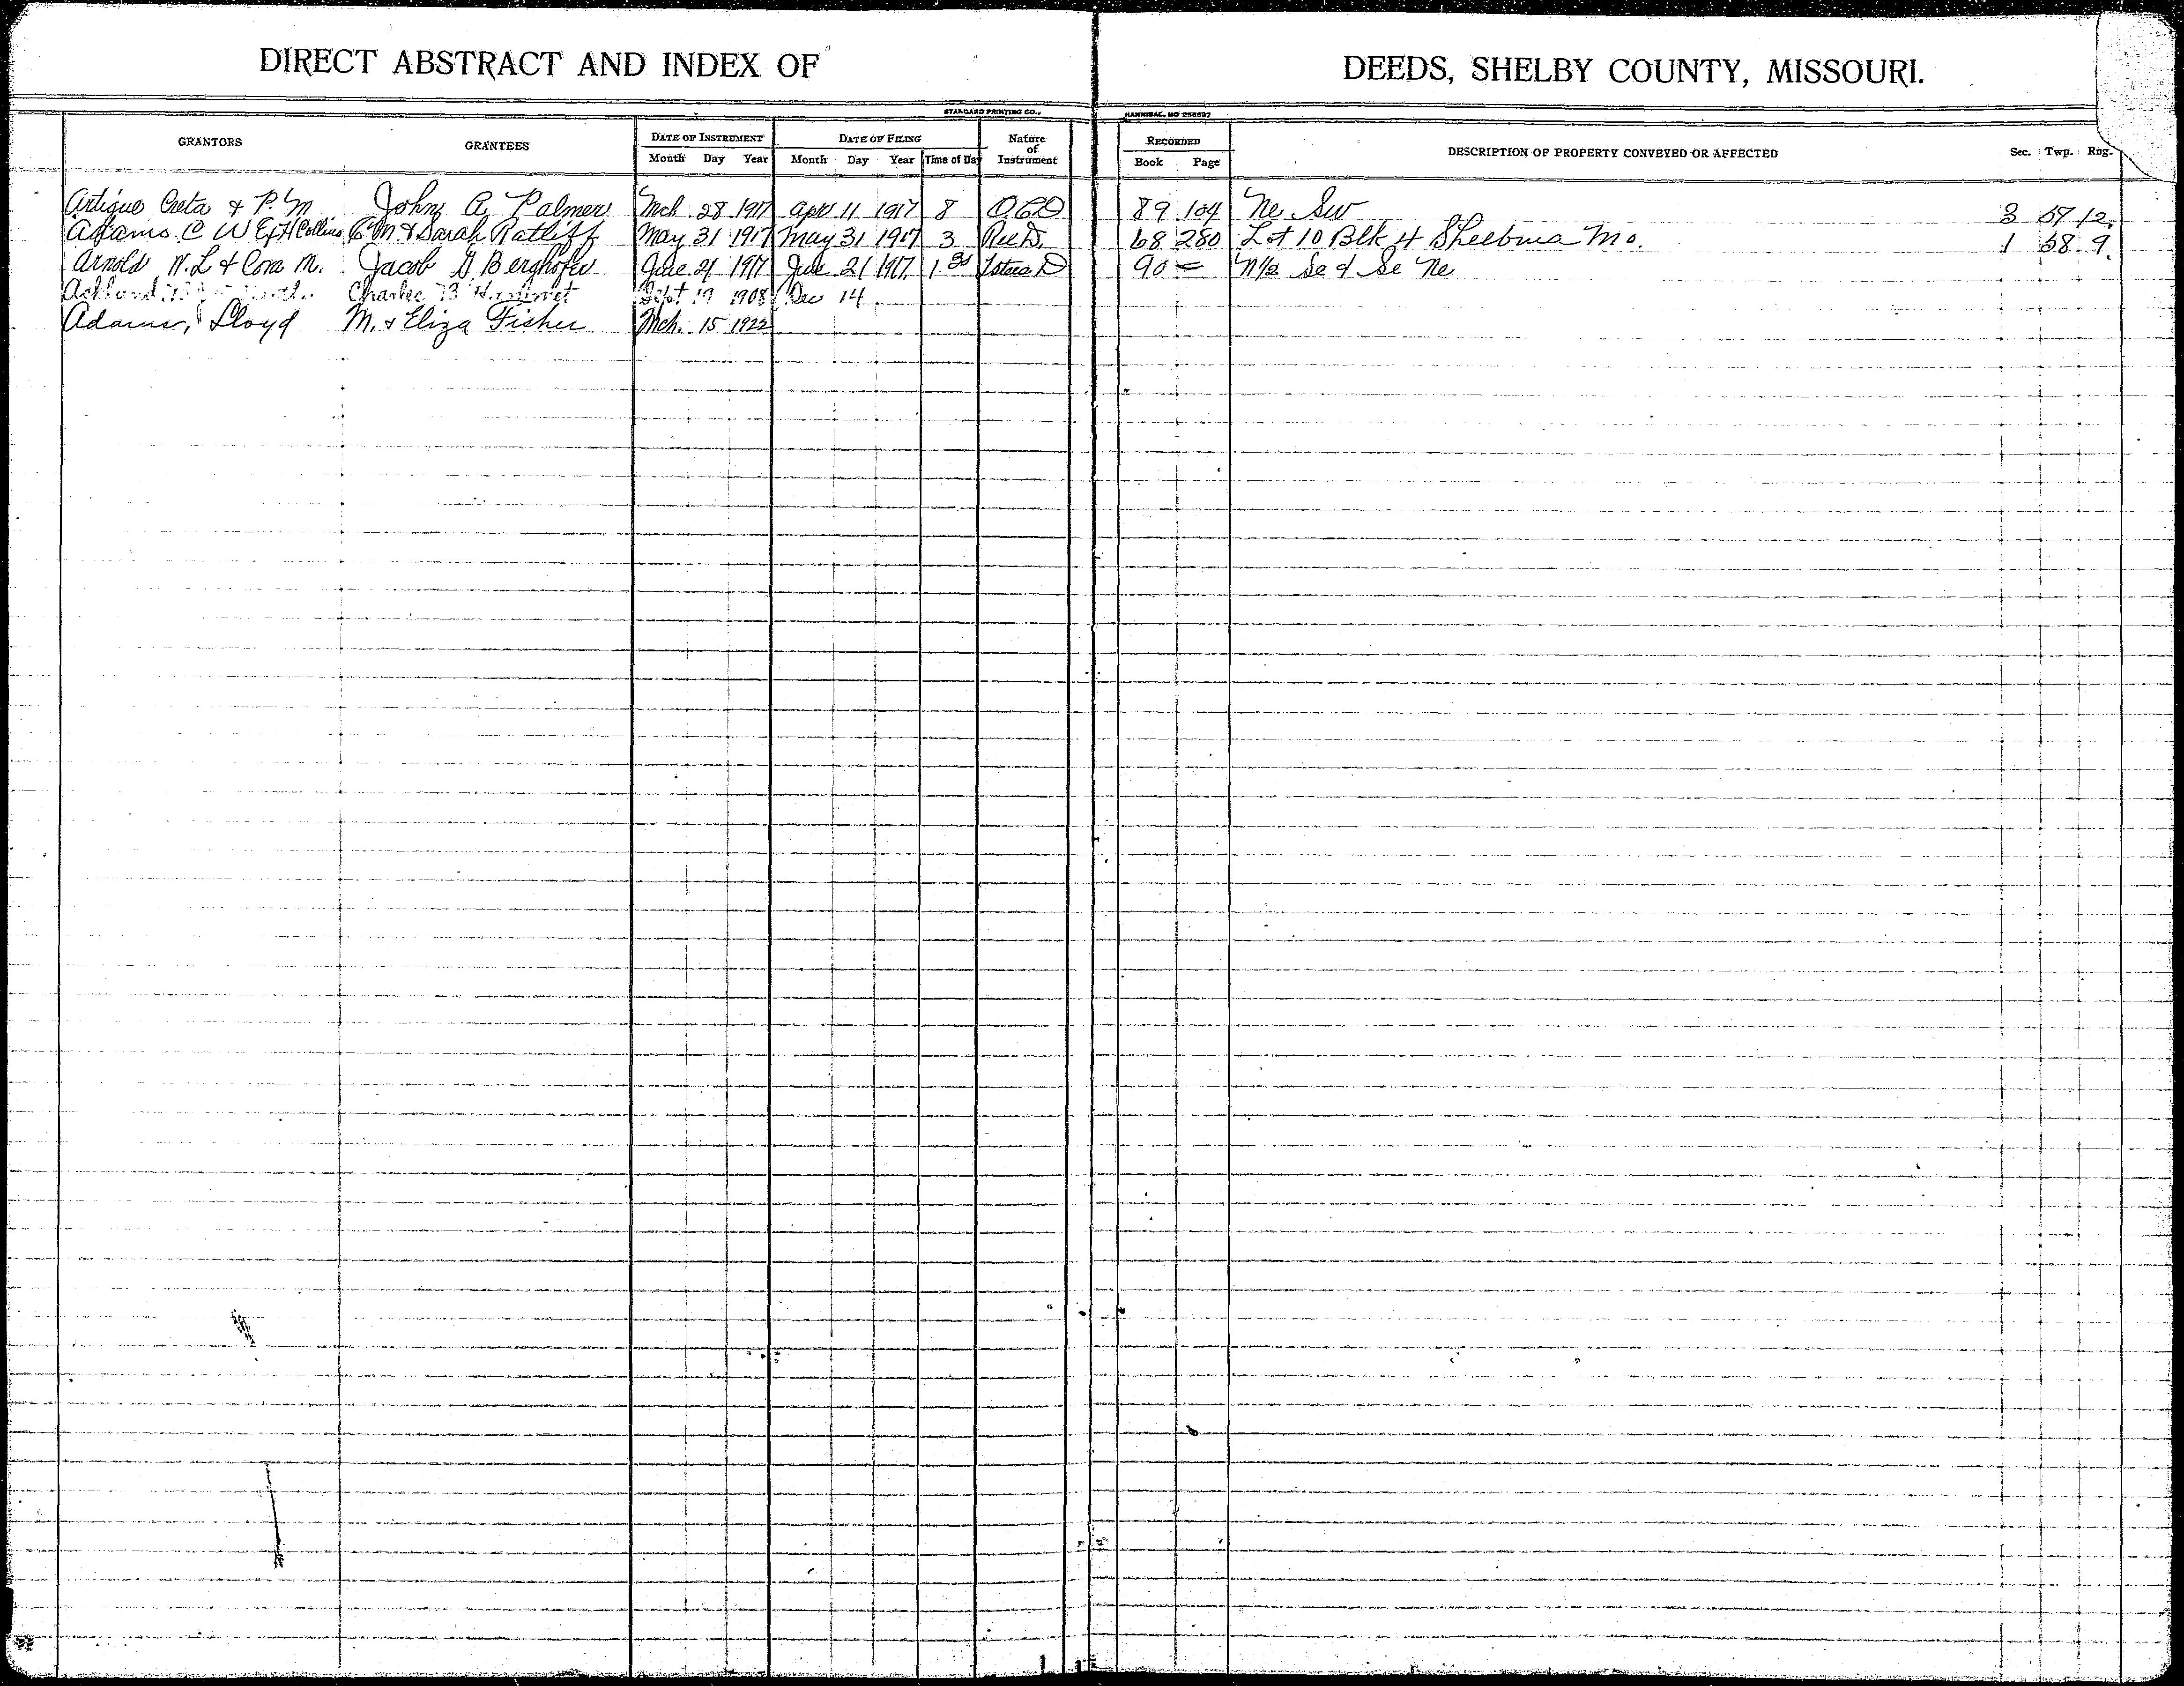 DIRECT ABSTRACT AND INDEX OF DEEDS, SHELBY COUNTY, MISSOURI.
STANDARD PRINTING CO., HANNIBAL, MO
GRANTORS GRANTEES DATE OF INSTRUMENT DATE OF FILING Nature of Instrument RECORDED DESCRIPTION OF PROPERTY CONVEYED OR AFFECTED Sec. Twp. Rng.
Month Day Year Month Day Year Time of Day Book Page
Artique & P. M John A Palmer Mch 28 1917 Apr 11 1917 8 QCD 89 104 Ne Sw 3 57 12
Adams C W Collins & Sarah Ratliff May 31 1917 May 31 1917 3 68 280 Lot 10 Blk 4 Shelbina Mo. 1 58 9
Arnold W. L & Cora M. Jacob G Berghofer June 21 1917 June 21 1917 1 30 90 = N1/2 Se & Se Ne
Charles B Sept 19 1908 Dec 14
Adams, Lloyd M. & Eliza Fisher Mch. 15 1922